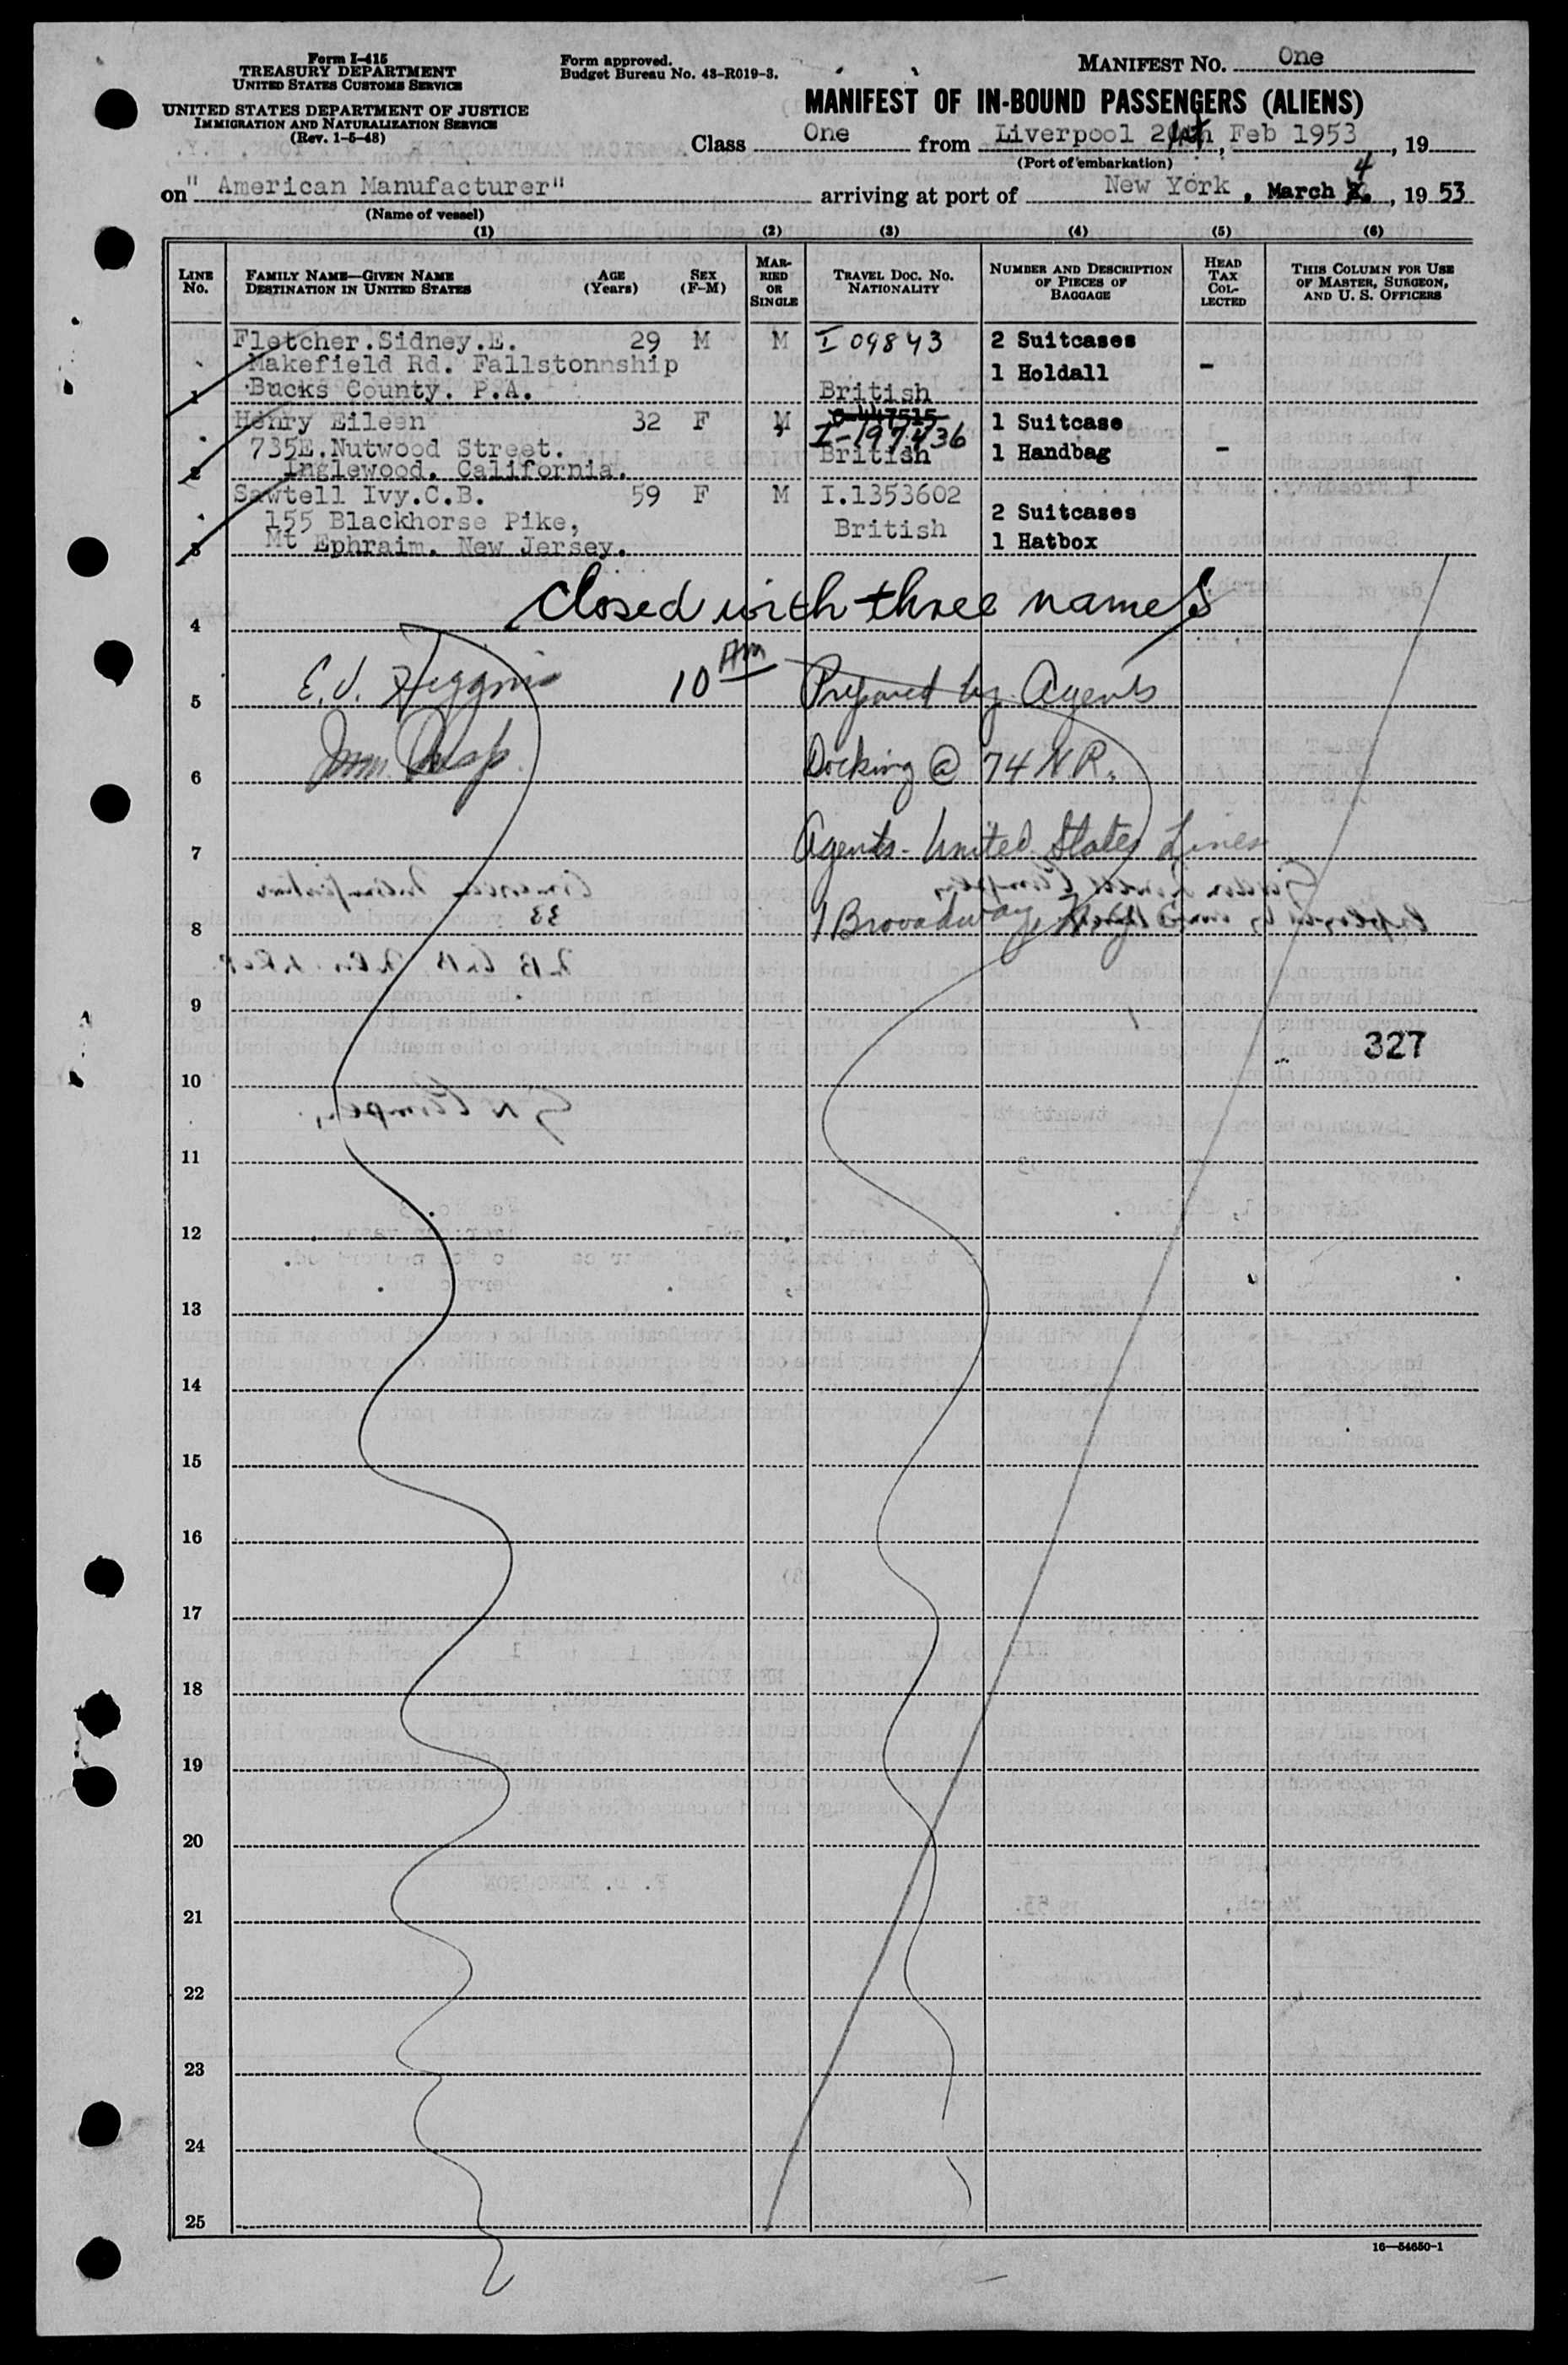 Form I-415
TREASURY DEPARTMENT
UNITED STATES CUSTOMS SERVICE
UNITED STATES DEPARTMENT OF JUSTICE
IMMIGRATION AND NATURALIZATION SERVICE
(Rev. 1-5-48)
Form approved.
Budget Bureau No. 43-R019-3.
MANIFEST NO. One
MANIFEST OF IN-BOUND PASSENGERS (ALIENS)
Class One from Liverpool Feb 1953, 19
(Port of embarkation)
on " American Manufacturer" arriving at port of New York, March 4, 19 53
(Name of vessel)
(1) (2) (3) (4) (5) (6)
LINE NO.
FAMILY NAME—GIVEN NAME
DESTINATION IN UNITED STATES
AGE (Years)
SEX (F-M)
MARRIED OR SINGLE
TRAVEL DOC. NO.
NATIONALITY
NUMBER AND DESCRIPTION OF PIECES OF BAGGAGE
HEAD TAX COLLECTED
THIS COLUMN FOR USE OF MASTER, SURGEON, AND U. S. OFFICERS
Fletcher.Sidney.E. 29 M M I 09843 2 Suitcases
Makefield Rd. Fallstonnship 1 Holdall -
1 Bucks County. P.A. British
Henry Eileen 32 F M 1 Suitcase
735E.Nutwood Street. I-197436 1 Handbag -
2 Inglewood. California. British
Sawtell Ivy.C.B. 59 F M I.1353602
155 Blackhorse Pike, British 2 Suitcases
3 Mt Ephraim. New Jersey. 1 Hatbox
closed with three names
4
E.J. Higgins 10 AM Prepared by Agents
5
Imm. Insp. Docking @ 74 N.R.
6
Agents - United States Lines
7
1 Broadway, N.Y.C.
8
9
327
10
11
12
13
14
15
16
17
18
19
20
21
22
23
24
25
16—54650-1